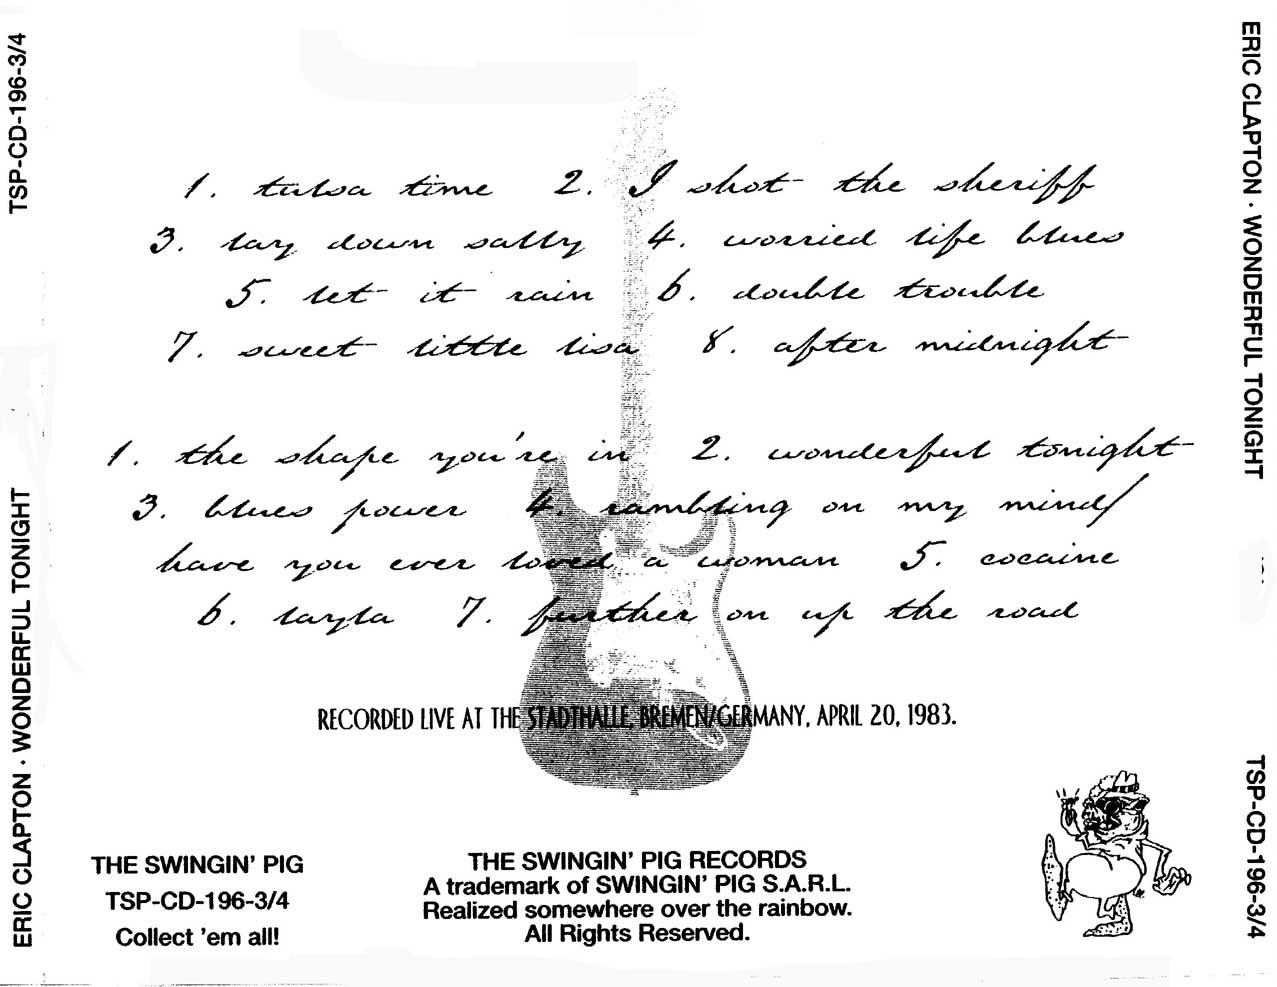 TSP-CD-196-3/4
ERIC CLAPTON · WONDERFUL TONIGHT
1. tulsa time 2. I shot the sheriff
3. lay down sally 4. worried life blues
5. let it rain 6. double trouble
7. sweet little lisa 8. after midnight
1. the shape you're in 2. wonderful tonight
3. blues power 4. rambling on my mind/
have you ever loved a woman 5. cocaine
6. layla 7. further on up the road
RECORDED LIVE AT THE STADTHALLE, BREMEN/GERMANY, APRIL 20, 1983.
THE SWINGIN' PIG
TSP-CD-196-3/4
Collect 'em all!
THE SWINGIN' PIG RECORDS
A trademark of SWINGIN' PIG S.A.R.L.
Realized somewhere over the rainbow.
All Rights Reserved.
ERIC CLAPTON · WONDERFUL TONIGHT
TSP-CD-196-3/4